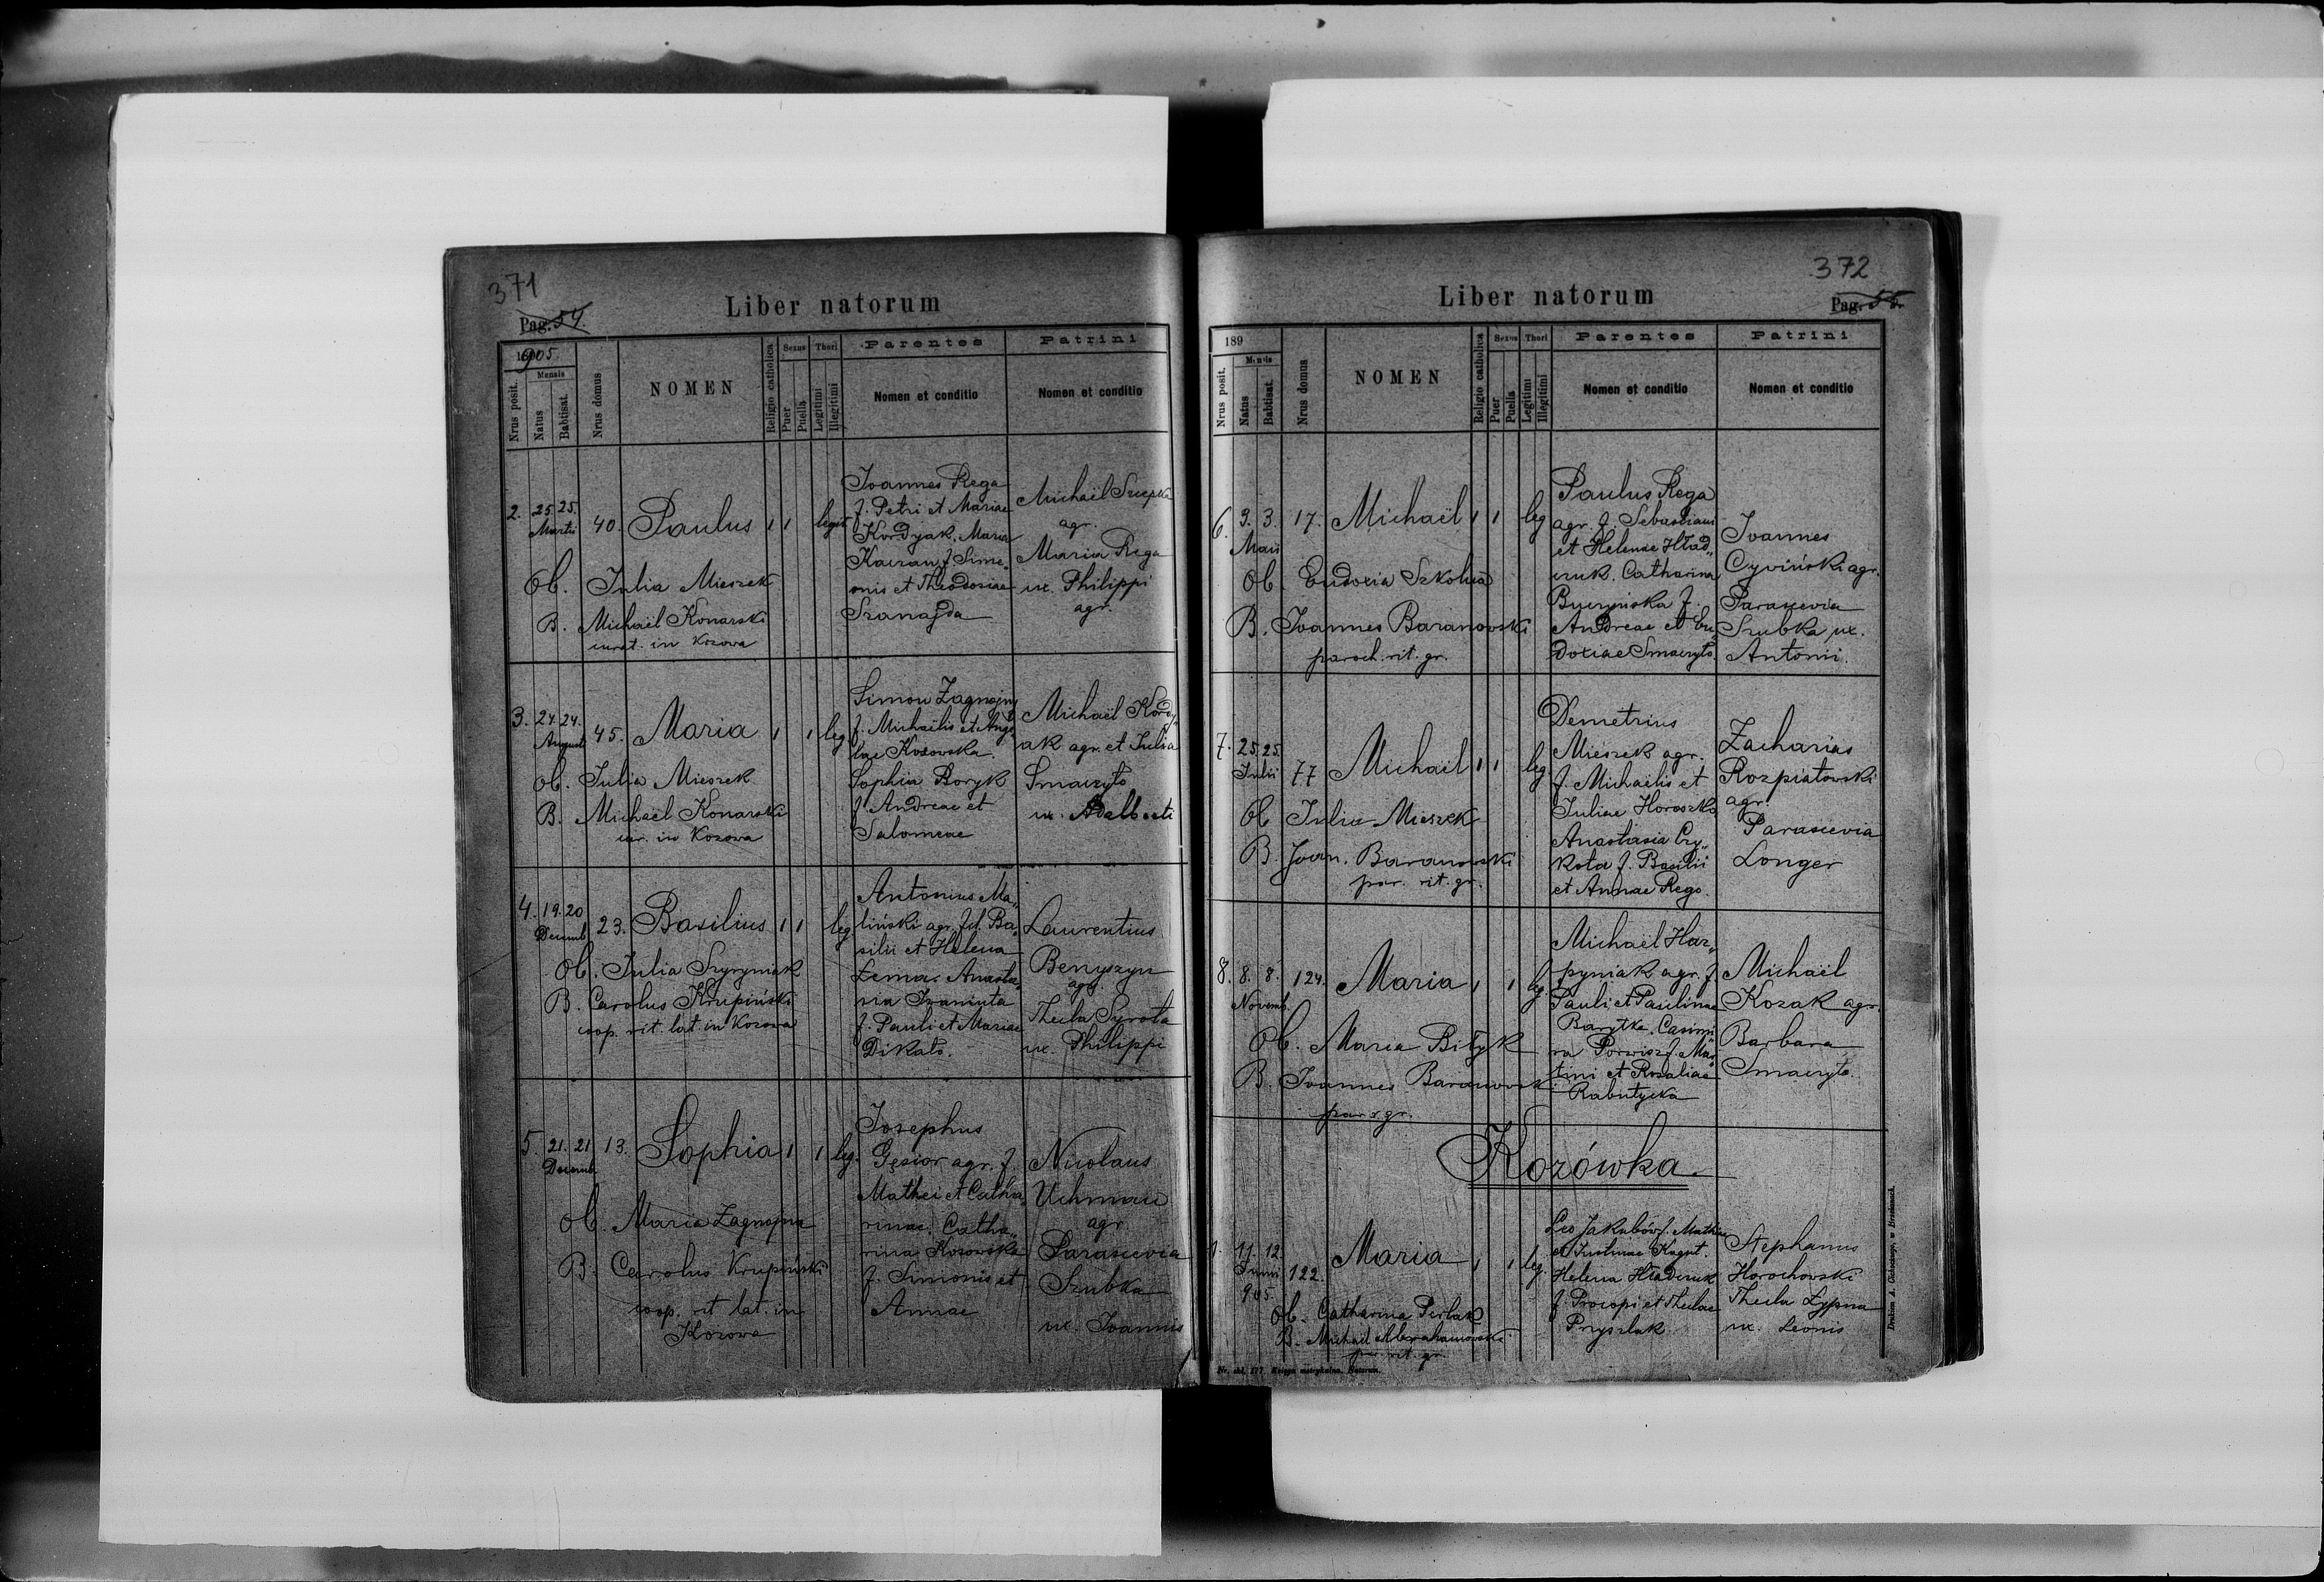 371
Pag. 54.
Liber natorum
1905.
Nrus posit.
Mensis
Natus
Babtisat.
Nrus domus
NOMEN
Religio catholica
Sexus
Puer
Puella
Thori
Legitimi
Illegitimi
Parentes
Nomen et conditio
Patrini
Nomen et conditio
2. 25. 25. Martii 40. Paulus 1 1 legit.
Ob. Julia Mieszek
B. Michaël Konarski
curat. in Kozowa
Joannes Rega
f. Petri et Mariae
Kordyak, Maria
f. Sime„
onis et Theodosiae
Szanajda
Michaël
agr.
Maria Rega
ux. Philippi
agr.
3. 24. 24. Augusti 45. Maria 1 1 leg
Ob. Julia Mieszek
B. Michaël Konarski
cur. in Kozowa
Simon Zagnojny
f. Michaëlis et Ange„
lae Kozowska.
Sophia Boryk
f. Andreae et
Salomeae
Michaël Kordy„
ak agr. et Julia
Smaczyło
ux. Adalberti
4. 19. 20 Decemb 23. Basilius 1 1 leg
Ob. Julia Szyryniak
B. Carolus Krupiński
coop. rit. lat. in Kozowa
Antonius Ma„
liński agr. fil. Ba„
silii et Helena
Anasta„
sia
f. Pauli et Mariae
Dikało.
Laurentius
Benyszyn
agr.
Thecla Syrota
ux. Philippi
5. 21. 21 Decemb. 13. Sophia 1 1 leg.
Ob. Maria Zagnojna
B. Carolus Krupiński
coop. rit lat. in
Kozowa
Josephus
Gęsior agr. f.
Mathei et Catha„
rinae. Catha„
rina Kozowska
f. Simonis et
Annae
Nicolaus
Uchman
agr.
Parascevia
Szubka
ux. Joannis
372
Liber natorum
Pag. 55.
189
Nrus posit.
Mensis
Natus
Babtisat.
Nrus domus
NOMEN
Religio catholica
Sexus
Puer
Puella
Thori
Legitimi
Illegitimi
Parentes
Nomen et conditio
Patrini
Nomen et conditio
6. 3. 3. Maii 17. Michaël 1 1 leg
Ob. Eudoxia Szkolna
B. Joannes Baranowski
paroch. rit. gr.
Paulus Rega
agr. f. Sebastiani
et Helenae Hład„
czuk. Catharina
Buczyńska f.
Andreae et Eu„
doxiae Smaczyło.
Joannes
Cywiński agr.
Parascevia
Szubka ux.
Antonii.
7. 25. 25. Julii 77 Michaël 1 1 leg
Ob Julia Mieszek
B. Joan. Baranowski
par. rit. gr.
Demetrius
Mieszek agr.
f. Michaëlis et
Juliae Horoszko
Anastasia Cy„
kota f. Basilii
et Annae Rego.
Zacharias
Rozpiatowski
agr.
Parascevia
Longer
8. 8. 8. Novemb. 124. Maria 1 1 leg.
Ob. Maria Biłyk
B. Joannes Baranowsk
par r. gr.
Michaël Har„
pyniak agr. f.
Pauli et Paulinae
Barytka. Casimi„
ra Porwisz f. Mar„
tini et Rosaliae
Rabutycka
Michaël
Kozak agr.
Barbara
Smaczyło.
Kozówka.
1. 11. 12. Junii 905. 122. Maria 1 1 leg.
Ob. Catharina Perlak
B. Michaël Abrahamowski
par. rit. gr.
Leo Jakubów f. Mathiae
et Justinae Kogut.
Helena Hładczuk
f. Procopi et Theclae
Pryszlak
Stephanus
Horochowski
Thecla Łypna
ux. Leonis
Nr. skl. 177. Księga metrykalna. Natorum.